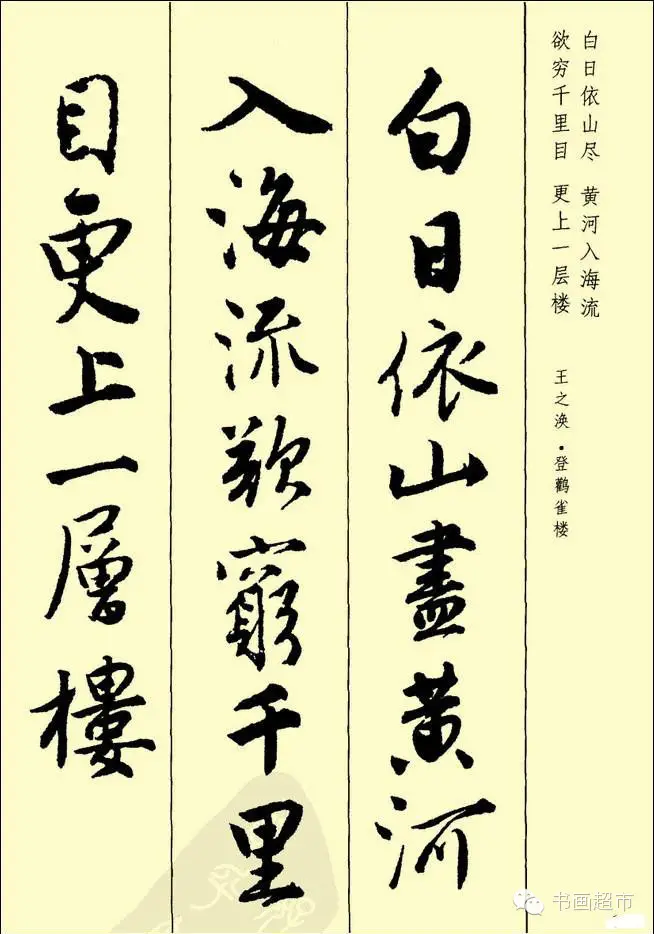 白日依山尽 黄河入海流
欲穷千里目 更上一层楼
王之涣·登鹳雀楼
白日依山盡黄河
入海流欲窮千里
目更上一層樓
书画超市